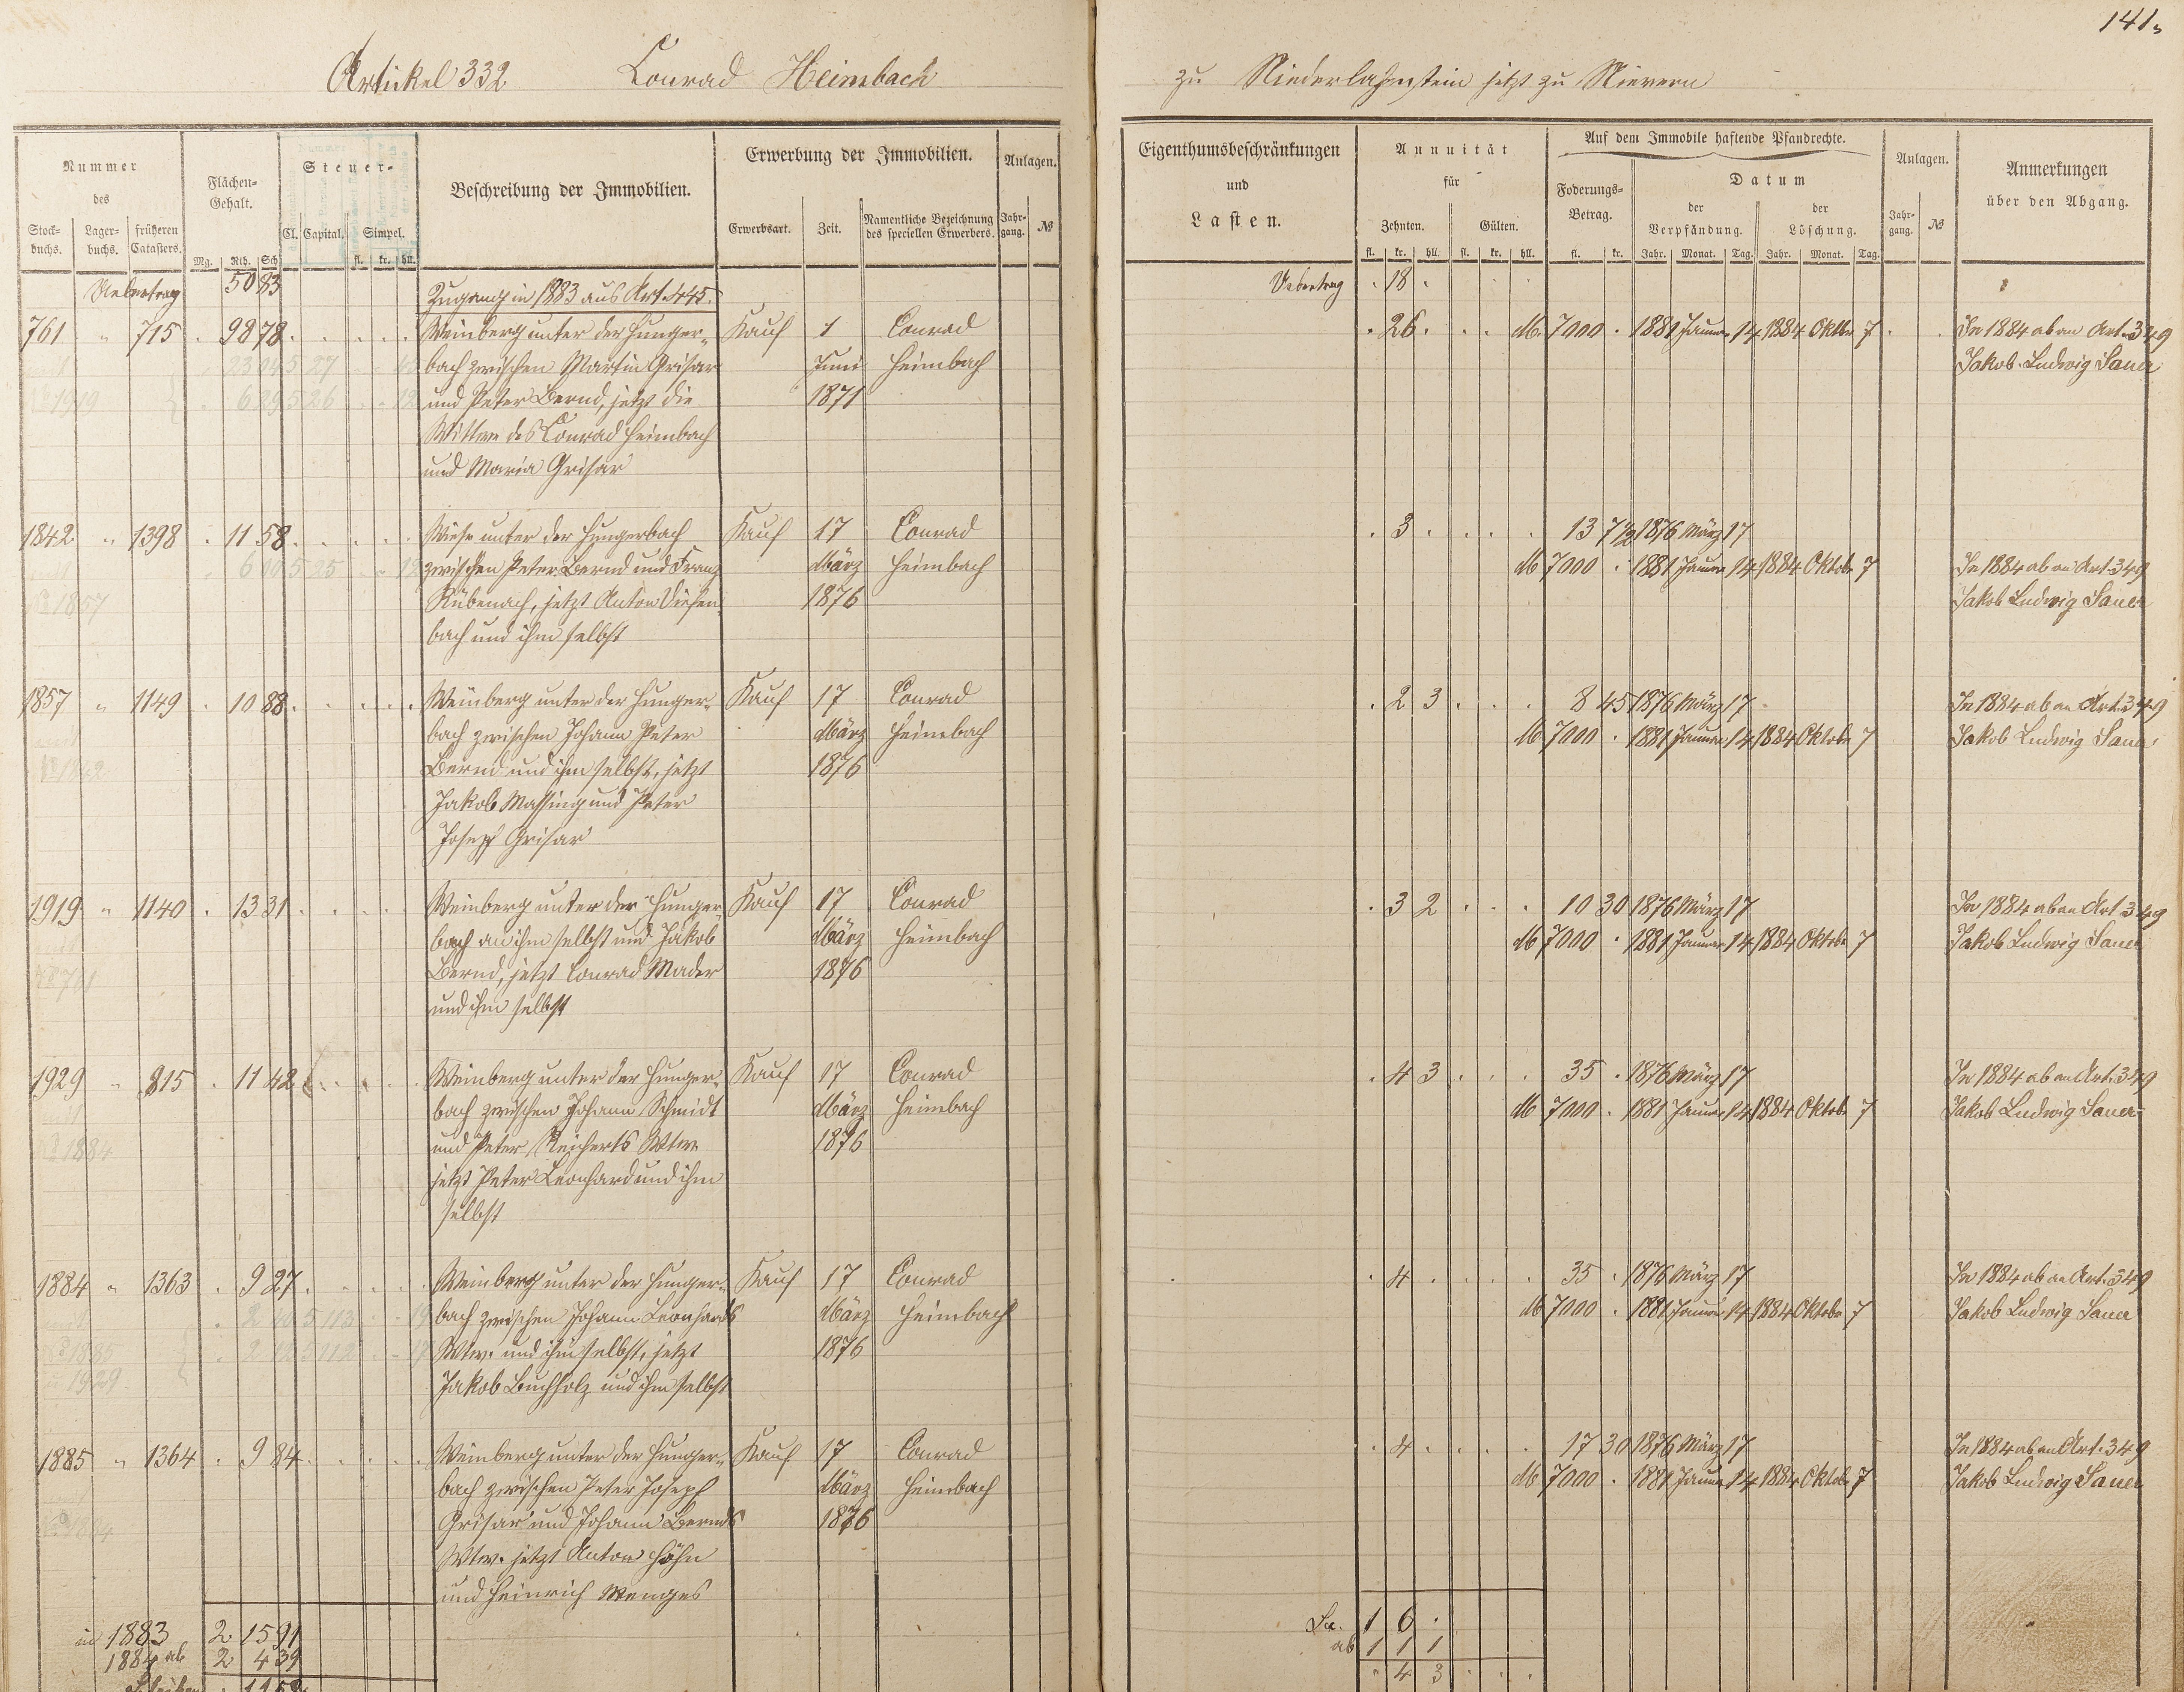 141.
Artikel 332. Conrad Heimbach
zu Niederlahnstein jetzt zu Nievern
Nummer
des
Stock-
buchs.
Lager-
buchs.
früheren
Catasters.
Flächen-
Gehalt.
Mg. Rth. Sch
Steuer-
Cl. Capital. Simpel.
fl. kr. hll.
Beschreibung der Immobilien.
Erwerbung der Immobilien.
Erwerbsart. Zeit. Namentliche Bezeichnung
des speciellen Erwerbers.
Anlagen.
Jahr-
gang. №
Uebertrag 50 83
Zugang in 1883 aus Art. 445.
761 " 715 . 98 78 Weinberg unter der Hunger- Kauf 1 Conrad
bach zwischen Martin Grisar Juni Heimbach
und Peter Bernd, jetzt die 1871
Wittwe des Conrad Heimbach
und Maria Grisar
1842 " 1398 . 11 58 Wiese unter der Hungerbach Kauf 17 Conrad
zwischen Peter Bernd und Franz März Heimbach
Kübenach, jetzt Anton Diefen 1876
bach und ihm selbst
1857 " 1149 . 10 88 Weinberg unter der Hunger- Kauf 17 Conrad
bach zwischen Johann Peter März Heimbach
Bernd und ihm selbst, jetzt 1876
Jakob Massing und Peter
Joseph Grisar
1919 " 1140 . 13 31 Weinberg unter der Hunger- Kauf 17 Conrad
bach an ihm selbst und Jakob März Heimbach
Bernd, jetzt Conrad Mader 1876
und ihm selbst
1929 " 815 . 11 42 Weinberg unter der Hunger- Kauf 17 Conrad
bach zwischen Johann Schmidt März Heimbach
und Peter Reicherts Wtwe 1876
jetzt Peter Leonhard und ihm
selbst
1884 " 1363 . 9 27 Weinberg unter der Hunger- Kauf 17 Conrad
bach zwischen Johann Leonhards März Heimbach
Wtw. und ihm selbst, jetzt 1876
Jakob Buchholz und ihm selbst
1885 " 1364 . 9 84 Weinberg unter der Hunger- Kauf 17 Conrad
bach zwischen Peter Joseph März Heimbach
Grisar und Johann Bernds 1876
Wtw. jetzt Anton Höhn
und Heinrich Menges
in 1883 2 15 91
1884 ab 2 4 39
Eigenthumsbeschränkungen
und
Lasten.
Annuität
für
Zehnten. Gülten.
fl. kr. hll. fl. kr. hll.
Auf dem Immobile haftende Pfandrechte.
Foderungs-
Betrag.
fl. kr.
Datum
der
Verpfändung.
der
Löschung.
Jahr. Monat. Tag. Jahr. Monat. Tag.
Anlagen.
Jahr-
gang. №
Anmerkungen
über den Abgang.
Uebertrag . 18 .
. 26 . M. 7000 . 1881 Januar 14 1884 Oktbr 7 In 1884 ab an Art. 349
Jakob Ludwig Sauer
. 3 . 13 7 1/2 1876 März 17
M 7000 . 1881 Januar 14 1884 Oktober 7 In 1884 ab an Art. 349
Jakob Ludwig Sauer
. 2 3 8 45 1876 März 17 In 1884 ab an Art. 349
M 7000 . 1881 Januar 14 1884 Oktober 7 Jakob Ludwig Sauer
. 3 2 10 30 1876 März 17 In 1884 ab an Art 349
M 7000 . 1881 Januar 14 1884 Oktobr 7 Jakob Ludwig Sauer
. 4 3 35 . 1876 März 17 In 1884 ab an Art. 349
M 7000 . 1881 Januar 14 1884 Oktob. 7 Jakob Ludwig Sauer
. 4 . 35 . 1876 März 17 In 1884 ab an Art. 349
M 7000 . 1881 Januar 14 1884 Oktober 7 Jakob Ludwig Sauer
. 4 . 17 30 1876 März 17 In 1884 ab an Art. 349
M 7000 . 1881 Januar 14 1884 Oktober 7 Jakob Ludwig Sauer
Sa. 1 6 .
ab 1 1 1
. 4 3